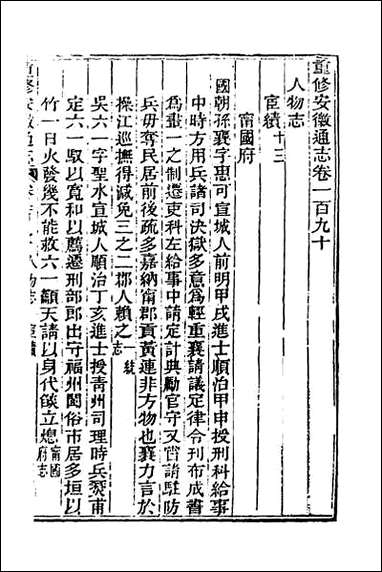 重修安徽通志卷一百九十
人物志
宦績十三
甯國府
國朝孫襄字惠可宣城人前明甲戌進士順治甲申授刑科給事
中時方用兵諸司決獄多意為輕重襄請議定律令刊布成書
為畫一之制遷吏科左給事中請定計典勵官守又嘗請駐防
兵毋奪民居前後疏多嘉納南郡貢黃連非方物也襄力言於
操江巡撫得減免三之二郡人賴之 志
吳六一字聖水宣城人順治丁亥進士授青州司理時兵燹甫
定六一馭以寬和以薦遷刑部郎出守福州閩俗市居多垣以
竹一日火發幾不能救六一籲天請以身代燄立熄甯國府志
重修安徽通志 人物志 宦績